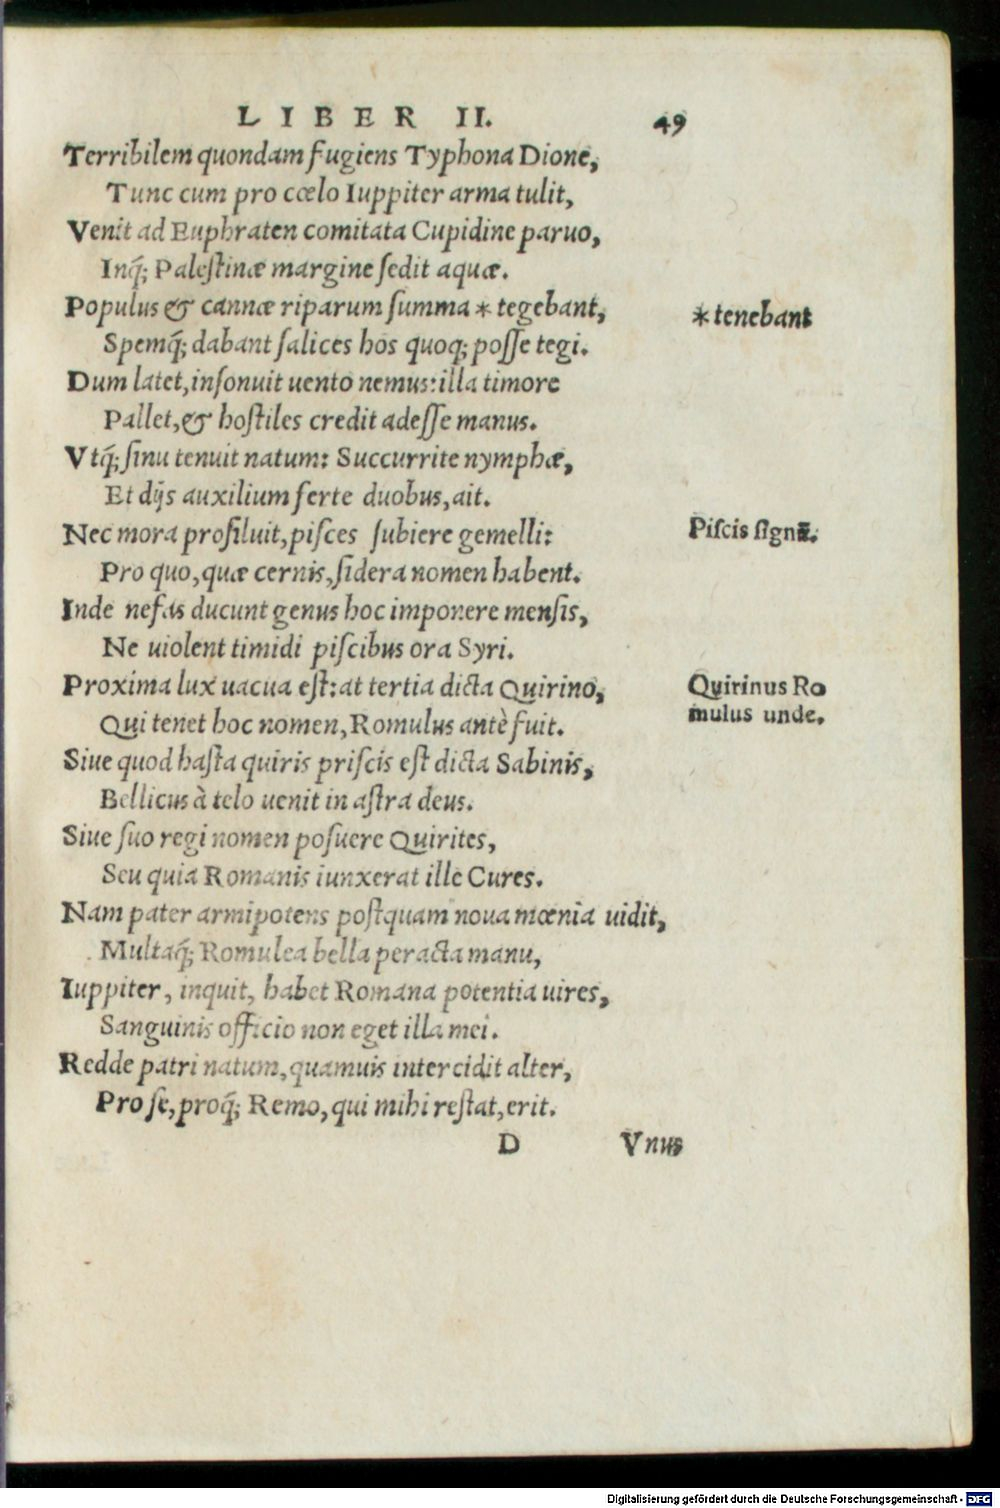 LIBER II. 49
Terribilem quondam fugiens Typhona Dione,
Tunc cum pro cœlo Iuppiter arma tulit,
Venit ad Euphraten comitata Cupidine paruo,
Inq́; Palestinæ margine sedit aquæ.
Populus & cannæ riparum summa * tegebant,
* tenebant
Spemq́; dabant salices hos quoq; posse tegi.
Dum latet, insonuit uento nemus: illa timore
Pallet, & hostiles credit adesse manus.
Vtq́; sinu tenuit natum: Succurrite nymphæ,
Et dijs auxilium ferte duobus, ait.
Nec mora prosiluit, pisces subiere gemelli:
Piscis signū.
Pro quo, quæ cernis, sidera nomen habent.
Inde nefas ducunt genus hoc imponere mensis,
Ne uiolent timidi piscibus ora Syri.
Proxima lux uacua est: at tertia dicta Quirino,
Quirinus Ro
Qui tenet hoc nomen, Romulus antè fuit.
mulus unde.
Siue quod hasta quiris priscis est dicta Sabinis,
Bellicus à telo uenit in astra deus.
Siue suo regi nomen posuere Quirites,
Seu quia Romanis iunxerat ille Cures.
Nam pater armipotens postquam noua mœnia uidit,
Multaq́; Romulea bella peracta manu,
Iuppiter, inquit, habet Romana potentia uires,
Sanguinis officio non eget illa mei.
Redde patri natum, quamuis intercidit alter,
Pro se, proq́; Remo, qui mihi restat, erit.
D Vnus
Digitalisierung gefördert durch die Deutsche Forschungsgemeinschaft - DFG